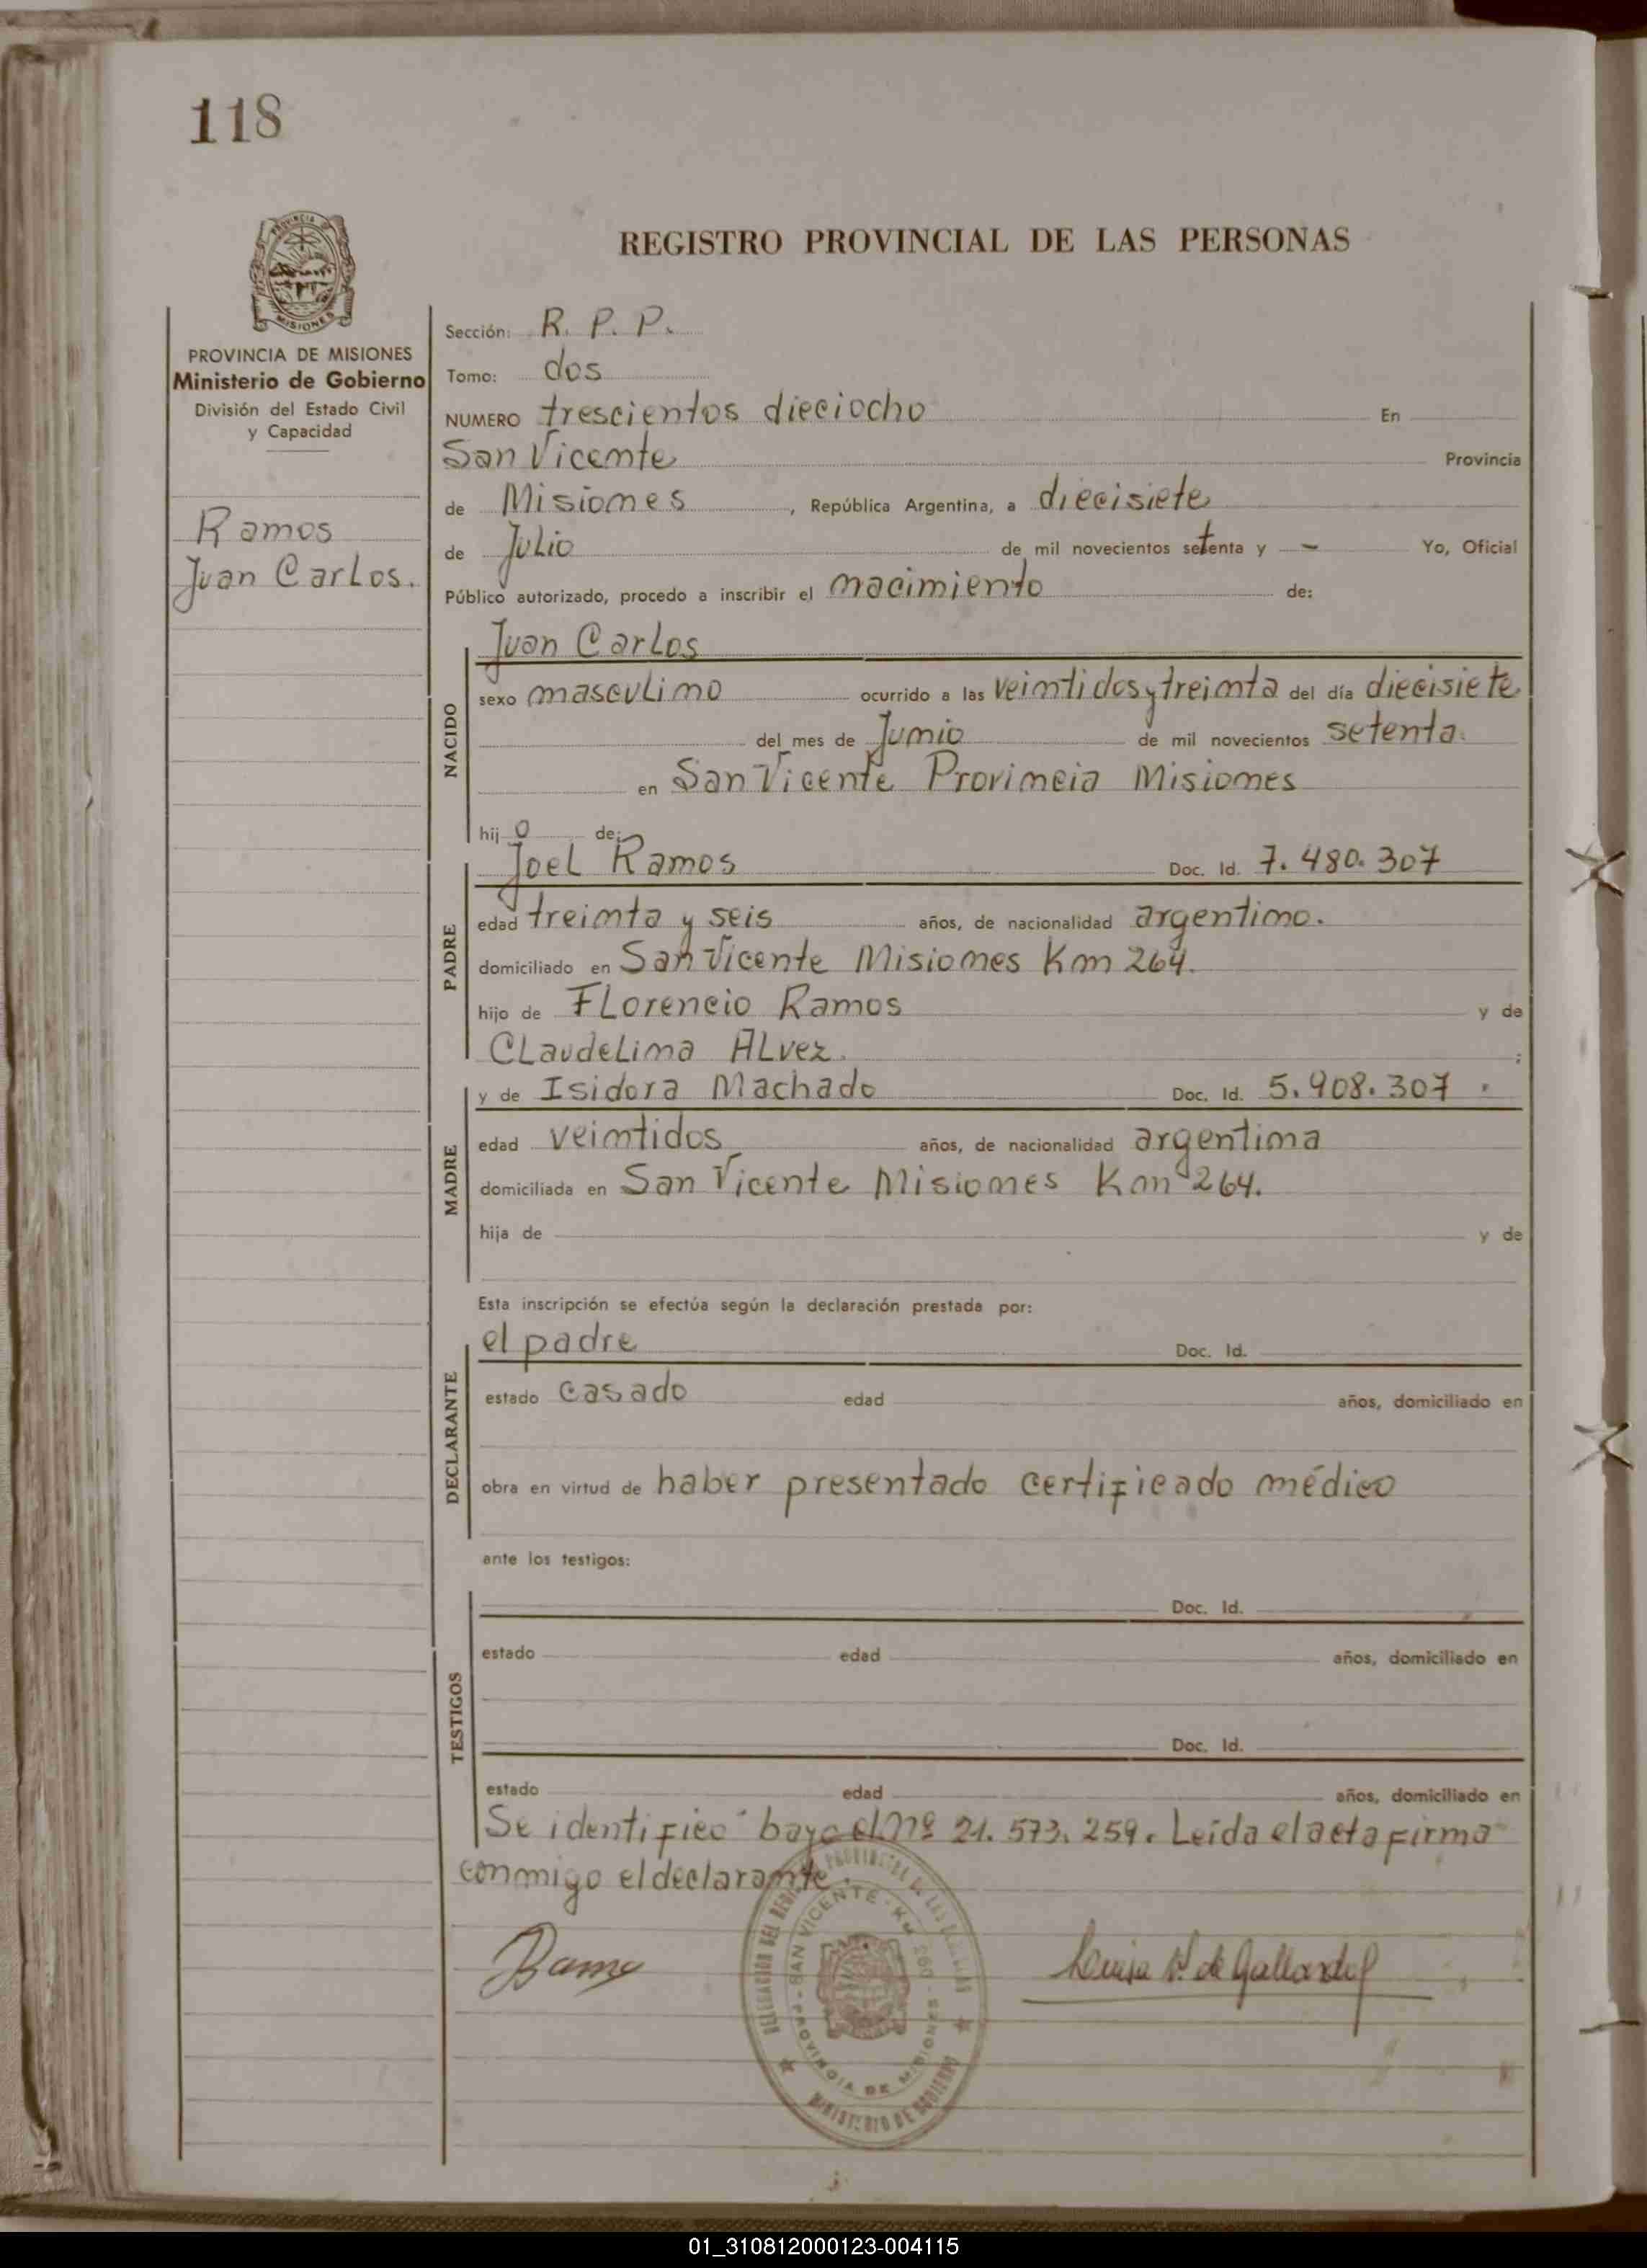 118
REGISTRO PROVINCIAL DE LAS PERSONAS
PROVINCIA DE MISIONES
Ministerio de Gobierno
División del Estado Civil
y Capacidad
Ramos
Juan Carlos.
Sección: R. P. P.
Tomo: dos
NUMERO trescientos dieciocho En
San Vicente Provincia
de Misiones, República Argentina, a diecisiete
de Julio de mil novecientos setenta y - Yo, Oficial
Público autorizado, procedo a inscribir el nacimiento de:
NACIDO
Juan Carlos
sexo masculino ocurrido a las veintidos y treinta del día diecisiete
del mes de Junio de mil novecientos setenta.
en San Vicente Provincia Misiones
hijo de:
PADRE
Joel Ramos Doc. Id. 7.480.307
edad treinta y seis años, de nacionalidad argentino.
domiciliado en San Vicente Misiones Km 264.
hijo de Florencio Ramos y de
Claudelina Alvez. ;
MADRE
y de Isidora Machado Doc. Id. 5.908.307.
edad veintidos años, de nacionalidad argentina
domiciliada en San Vicente Misiones Km 264.
hija de y de
Esta inscripción se efectúa según la declaración prestada por:
DECLARANTE
el padre Doc. Id.
estado casado edad años, domiciliado en
obra en virtud de haber presentado certificado médico
ante los testigos:
TESTIGOS
Doc. Id.
estado edad años, domiciliado en
Doc. Id.
estado edad años, domiciliado en
Se identificó bayo el nº 21.573.259. Leída el acta firma
conmigo el declarante.
Ramos
Luisa de Gallardo
SAN VICENTE
PROVINCIA DE MISIONES
MINISTERIO DE GOBIERNO
01_310812000123-004115